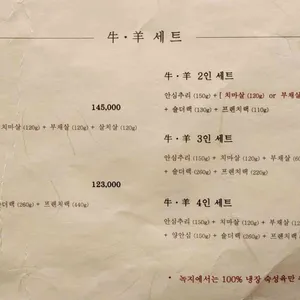 牛 · 羊 세트
牛 · 羊 2인 세트
안심추리 (150g) + [ 치마살 (120g) or 부채살
+ 숄더랙 (130g) + 프렌치랙 (110g)
145,000
치마살 (120g) + 부채살 (120g) + 살치살 (120g)
牛 · 羊 3인 세트
안심추리 (150g) + 치마살 (120g) + 부채살
+ 숄더랙 (260g) + 프렌치랙 (220g)
123,000
숄더랙 (260g) + 프렌치랙 (440g)
牛 · 羊 4인 세트
안심추리 (150g) + 치마살 (120g) + 부채살
+ 양안심 (150g) + 숄더랙 (260g) + 프렌치랙
* 녹지에서는 100% 냉장 숙성육만